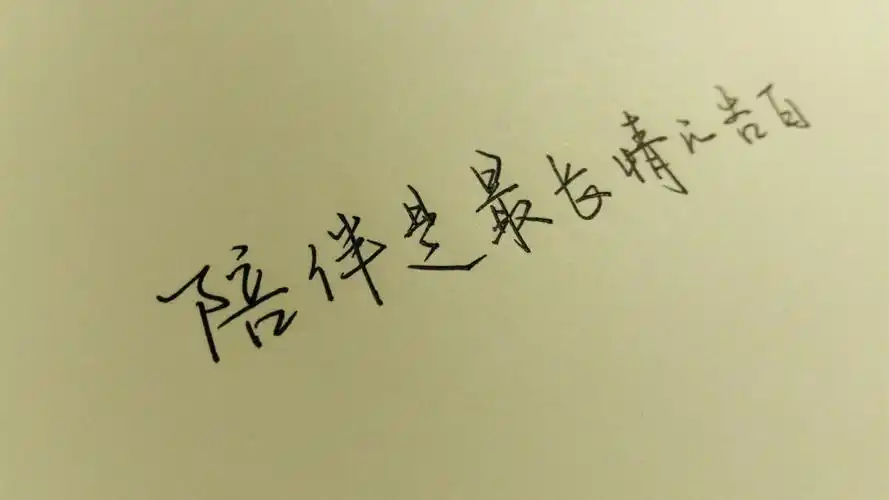 陪伴是最长情的告白